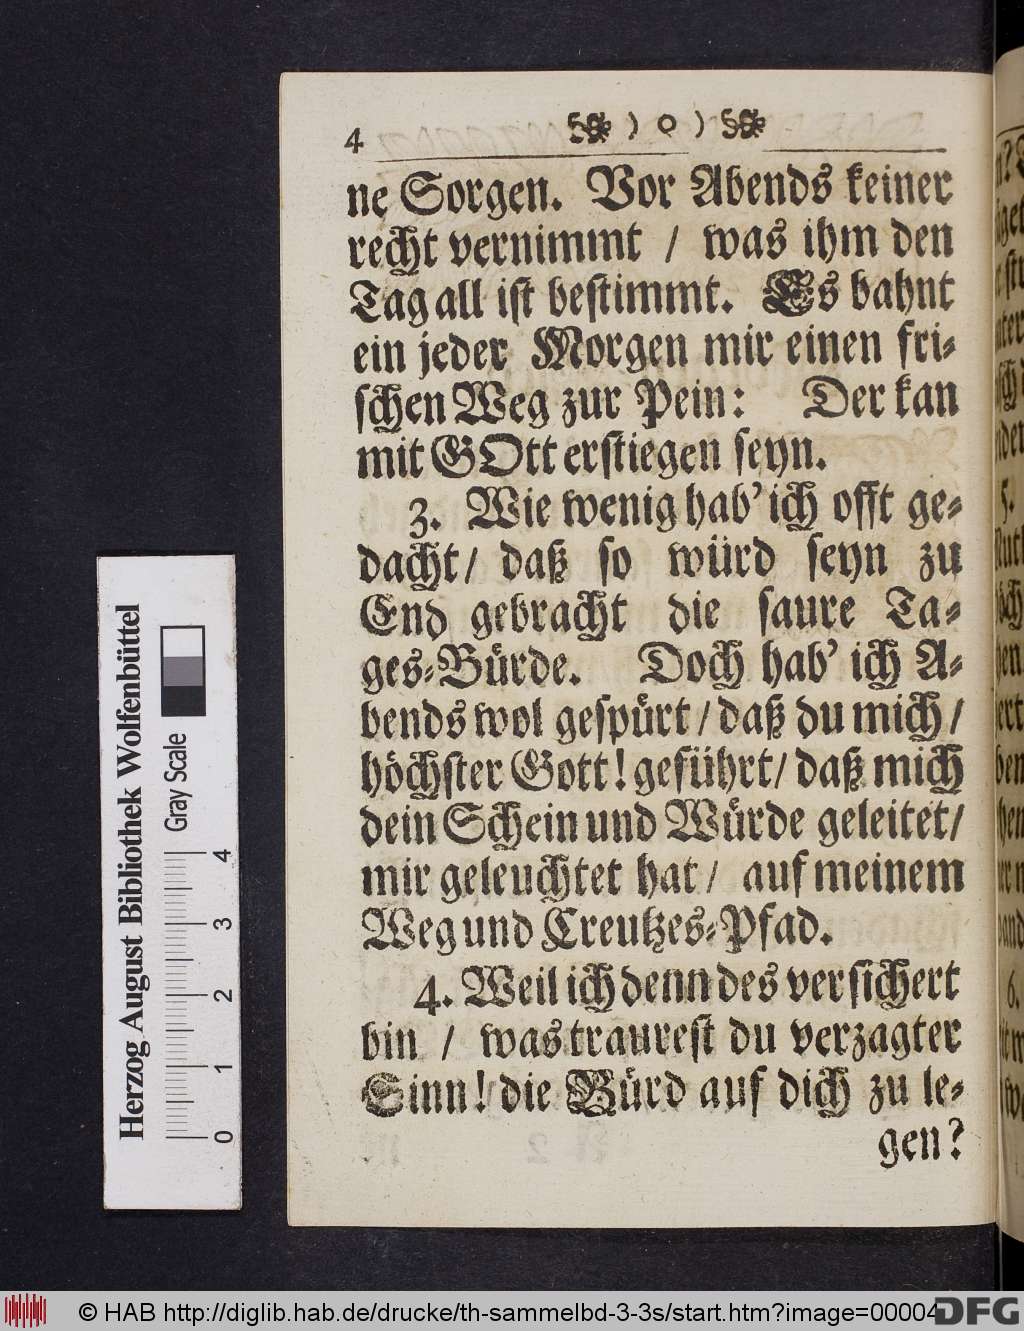 4 ) o (
ne Sorgen. Vor Abends keiner
recht vernimmt / was ihm den
Tag all ist bestimmt. Es bahnt
ein jeder Morgen mir einen fri-
schen Weg zur Pein: Der kan
mit GOtt erstiegen seyn.
3. Wie wenig hab' ich offt ge-
dacht / daß so würd seyn zu
End gebracht die saure Ta-
ges-Bürde. Doch hab' ich A-
bends wol gespürt / daß du mich /
höchster Gott! geführt / daß mich
dein Schein und Würde geleitet /
mir geleuchtet hat / auf meinem
Weg und Creutzes-Pfad.
4. Weil ich denn des versichert
bin / was traurest du verzagter
Sinn! die Bürd auf dich zu le-
gen?
Herzog August Bibliothek Wolfenbüttel
Gray Scale
0 1 2 3 4
© HAB http://diglib.hab.de/drucke/th-sammelbd-3-3s/start.htm?image=00004
DFG